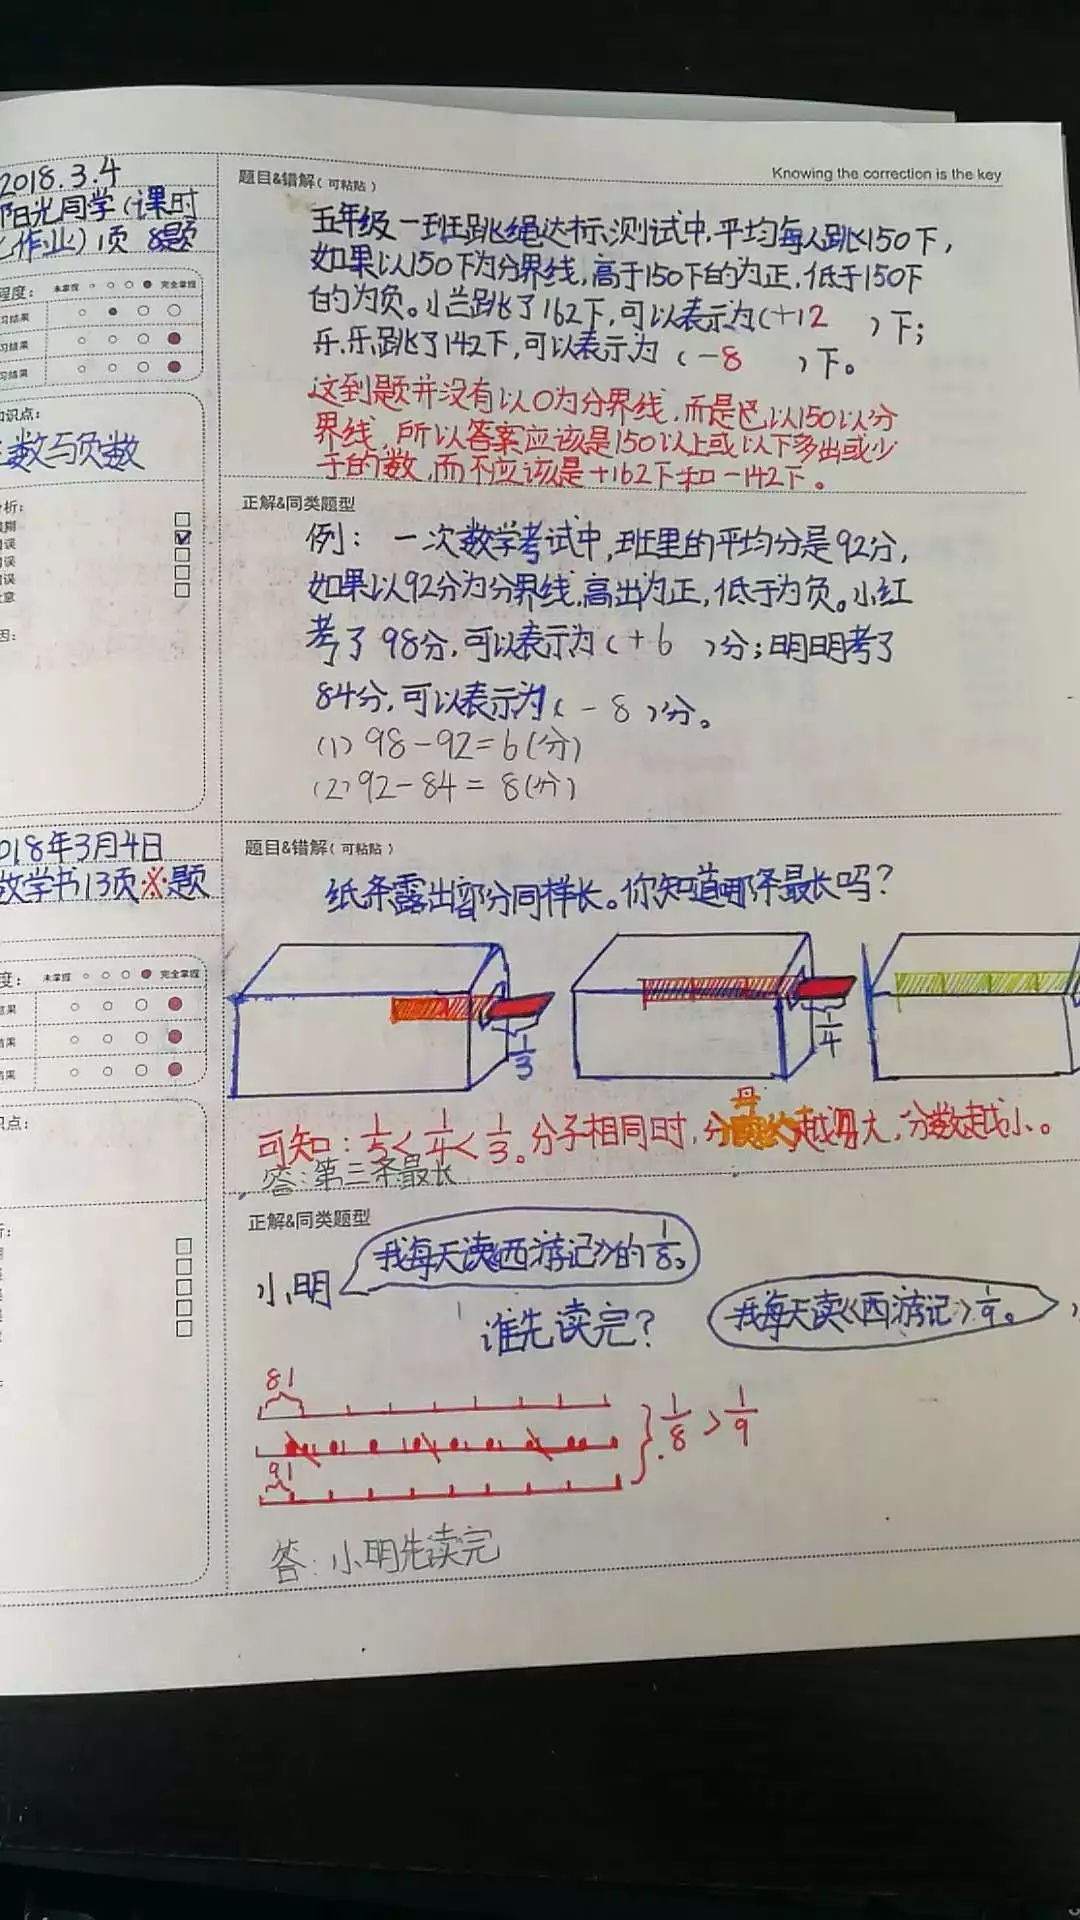 2018.3.4
阳光同学(课时
化作业)1页 8题
程度: 未掌握 完全掌握
习结果
习结果
习结果
知识点:
数与负数
析:
误
误
误
意
因:
题目&错解(可粘贴)
Knowing the correction is the key
五年级一班跳绳达标测试中,平均每人跳150下,
如果以150下为分界线,高于150下的为正,低于150下
的为负。小兰跳了162下,可以表示为(+12 )下;
乐乐跳了142下,可以表示为(-8 )下。
这到题并没有以0为分界线,而是已以150以分
界线,所以答案应该是150以上或以下多出或少
于的数,而不应该是+162下和-142下。
正解&同类题型
例: 一次数学考试中,班里的平均分是92分,
如果以92分为分界线,高出为正,低于为负。小红
考了98分,可以表示为(+6 )分;明明考了
84分,可以表示为(-8)分。
(1)98-92=6(分)
(2)92-84=8(分)
018年3月4日
数学书13页※题
度: 未掌握 完全掌握
结果
结果
结果
识点:
析:
题目&错解(可粘贴)
纸条露出部分同样长。你知道哪条最长吗?
1/3
1/4
可知:1/5<1/4<1/3。分子相同时,分母越大,分数越小。
答:第三条最长
正解&同类题型
小明
我每天读《西游记》的1/8。
谁先读完?
我每天读《西游记》1/9。
81
91
1/8>1/9
答:小明先读完